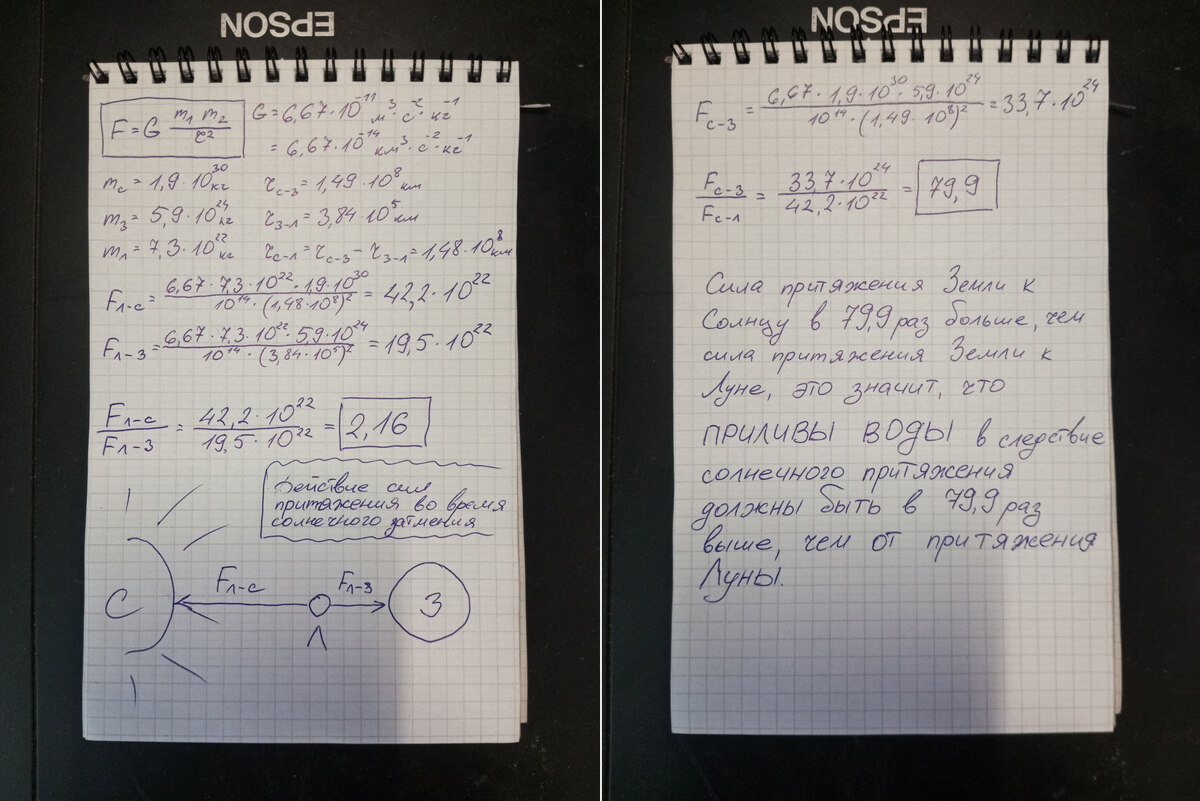 EPSON
F = G m₁ m₂ / r²
G = 6,67·10⁻¹¹ м³·с⁻²·кг⁻¹
= 6,67·10⁻¹⁴ км³·с⁻²·кг⁻¹
mс = 1,9·10³⁰ кг rс-з = 1,49·10⁸ км
mз = 5,9·10²⁴ кг rз-л = 3,84·10⁵ км
mл = 7,3·10²² кг rс-л = rс-з - rз-л = 1,48·10⁸ км
Fл-с = 6,67·7,3·10²²·1,9·10³⁰ / 10¹⁴·(1,48·10⁸)² = 42,2·10²²
Fл-з = 6,67·7,3·10²²·5,9·10²⁴ / 10¹⁴·(3,84·10⁵)² = 19,5·10²²
Fл-с / Fл-з = 42,2·10²² / 19,5·10²² = 2,16
Действие сил
притяжения во время
солнечного затмения
С Fл-с Л Fл-з З
EPSON
Fс-з = 6,67·1,9·10³⁰·5,9·10²⁴ / 10¹⁴·(1,49·10⁸)² = 33,7·10²⁴
Fс-з / Fс-л = 33,7·10²⁴ / 42,2·10²² = 79,9
Сила притяжения Земли к
Солнцу в 79,9 раз больше, чем
сила притяжения Земли к
Луне, это значит, что
ПРИЛИВЫ ВОДЫ в следствие
солнечного притяжения
должны быть в 79,9 раз
выше, чем от притяжения
Луны.